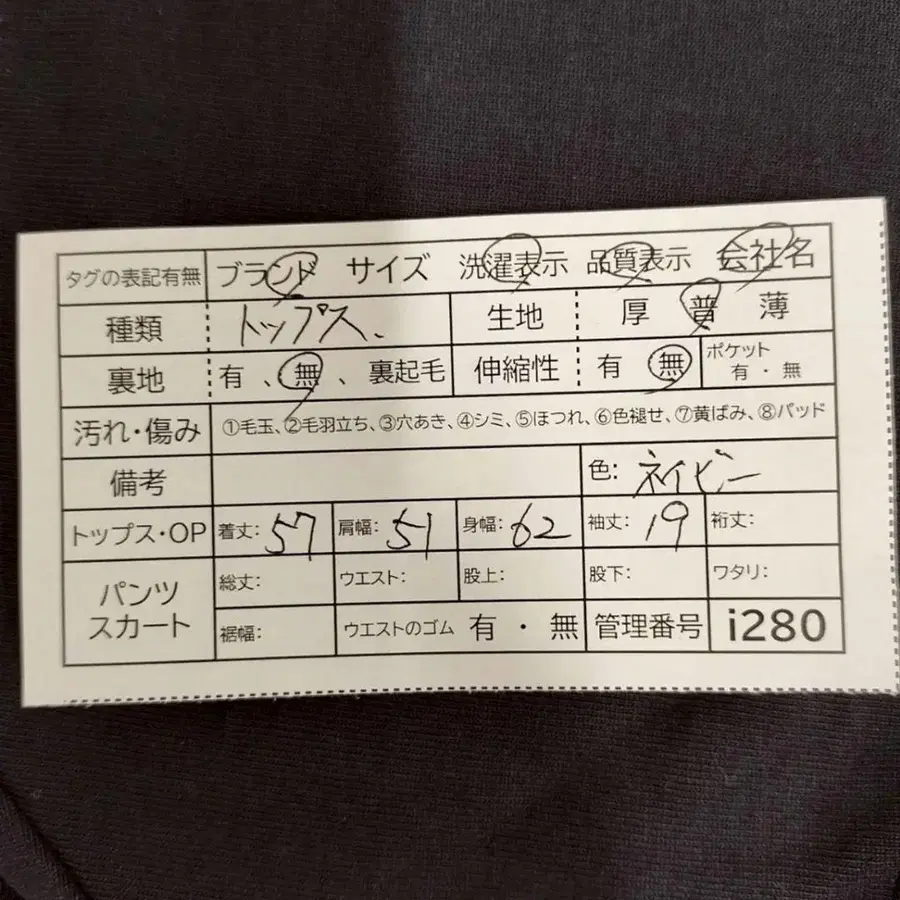 タグの表記有無 ブランド サイズ 洗濯表示 品質表示 会社名
種類 トップス、 生地 厚 普 薄
裏地 有 、 無 、 裏起毛 伸縮性 有 無 ポケット 有 ・ 無
汚れ・傷み ①毛玉、②毛羽立ち、③穴あき、④シミ、⑤ほつれ、⑥色褪せ、⑦黄ばみ、⑧パッド
備考 色: ネイビー
トップス・OP 着丈: 57 肩幅: 51 身幅: 62 袖丈: 19 裄丈:
パンツ スカート 総丈: ウエスト: 股上: 股下: ワタリ:
裾幅: ウエストのゴム 有 ・ 無 管理番号 i280